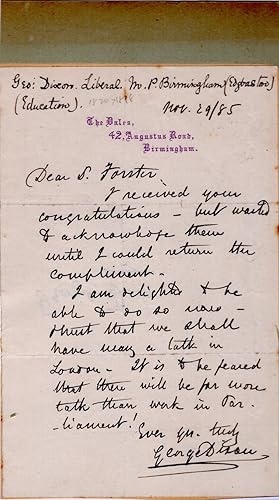 Geo: Dixon. Liberal. M. P. Birmingham (Edgbaston)
(Education). 1820-1898
Nov. 29/85
The Dales,
42, Augustus Road,
Birmingham.
Dear S. Forster,
I received your
congratulations – but waited
to acknowledge them
until I could return the
compliment.
I am delighted to be
able to do so now –
& trust that we shall
have many a talk in
London – It is to be feared
that there will be far more
talk than work in Par-
liament!
Ever yrs. truly
George Dixon